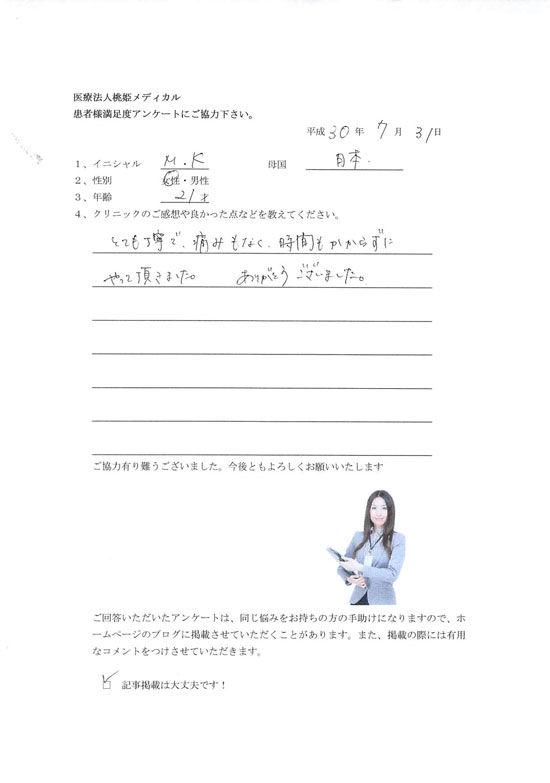 医療法人桃姫メディカル
患者様満足度アンケートにご協力下さい。
平成 30 年 7 月 31 日
1、イニシャル M.K 母国 日本.
2、性別 女性・男性
3、年齢 21才
4、クリニックのご感想や良かった点などを教えてください。
とても丁寧で、痛みもなく、時間もかからずに
やって頂きました。 ありがとうございました。
ご協力有り難うございました。今後ともよろしくお願いいたします
ご回答いただいたアンケートは、同じ悩みをお持ちの方の手助けになりますので、ホ
ームページのブログに掲載させていただくことがあります。また、掲載の際には有用
なコメントをつけさせていただきます。
☑ 記事掲載は大丈夫です！